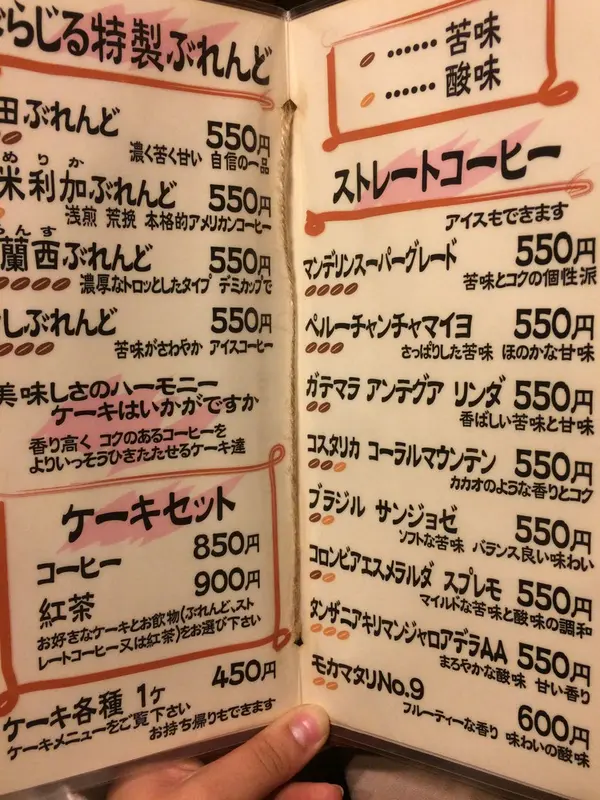 らじる特製ぶれんど
田ぶれんど
550円
濃く苦く甘い 自信の一品
めりか
米利加ぶれんど 550円
浅煎 荒挽 本格的アメリカンコーヒー
らんす
蘭西ぶれんど 550円
濃厚なトロッとしたタイプ デミカップで
しぶれんど 550円
苦味がさわやか アイスコーヒー
美味しさのハーモニー
ケーキはいかがですか
香り高く コクのあるコーヒーを
よりいっそうひきたたせるケーキ達
ケーキセット
コーヒー 850円
紅茶 900円
お好きなケーキとお飲物(ぶれんど、スト
レートコーヒー又は紅茶)をお選び下さい
ケーキ各種 1ヶ 450円
ケーキメニューをご覧下さい
お持ち帰りもできます
……苦味
……酸味
ストレートコーヒー
アイスもできます
マンデリンスーパーグレード 550円
苦味とコクの個性派
ペルーチャンチャマイヨ 550円
さっぱりした苦味 ほのかな甘味
ガテマラ アンテグア リンダ 550円
香ばしい苦味と甘味
コスタリカ コーラルマウンテン 550円
カカオのような香りとコク
ブラジル サンジョゼ 550円
ソフトな苦味 バランス良い味わい
コロンビアエスメラルダ スプレモ 550円
マイルドな苦味と酸味の調和
タンザニアキリマンジャロアデラAA 550円
まろやかな酸味 甘い香り
モカマタリNo.9 600円
フルーティーな香り 味わいの酸味